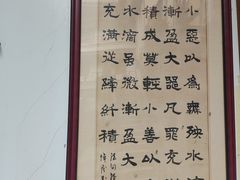 小惡以為無殃水滴
漸盈大器凡罪充
積成莫輕小善以
水滴虽微漸盈大
充滿從纖纖積